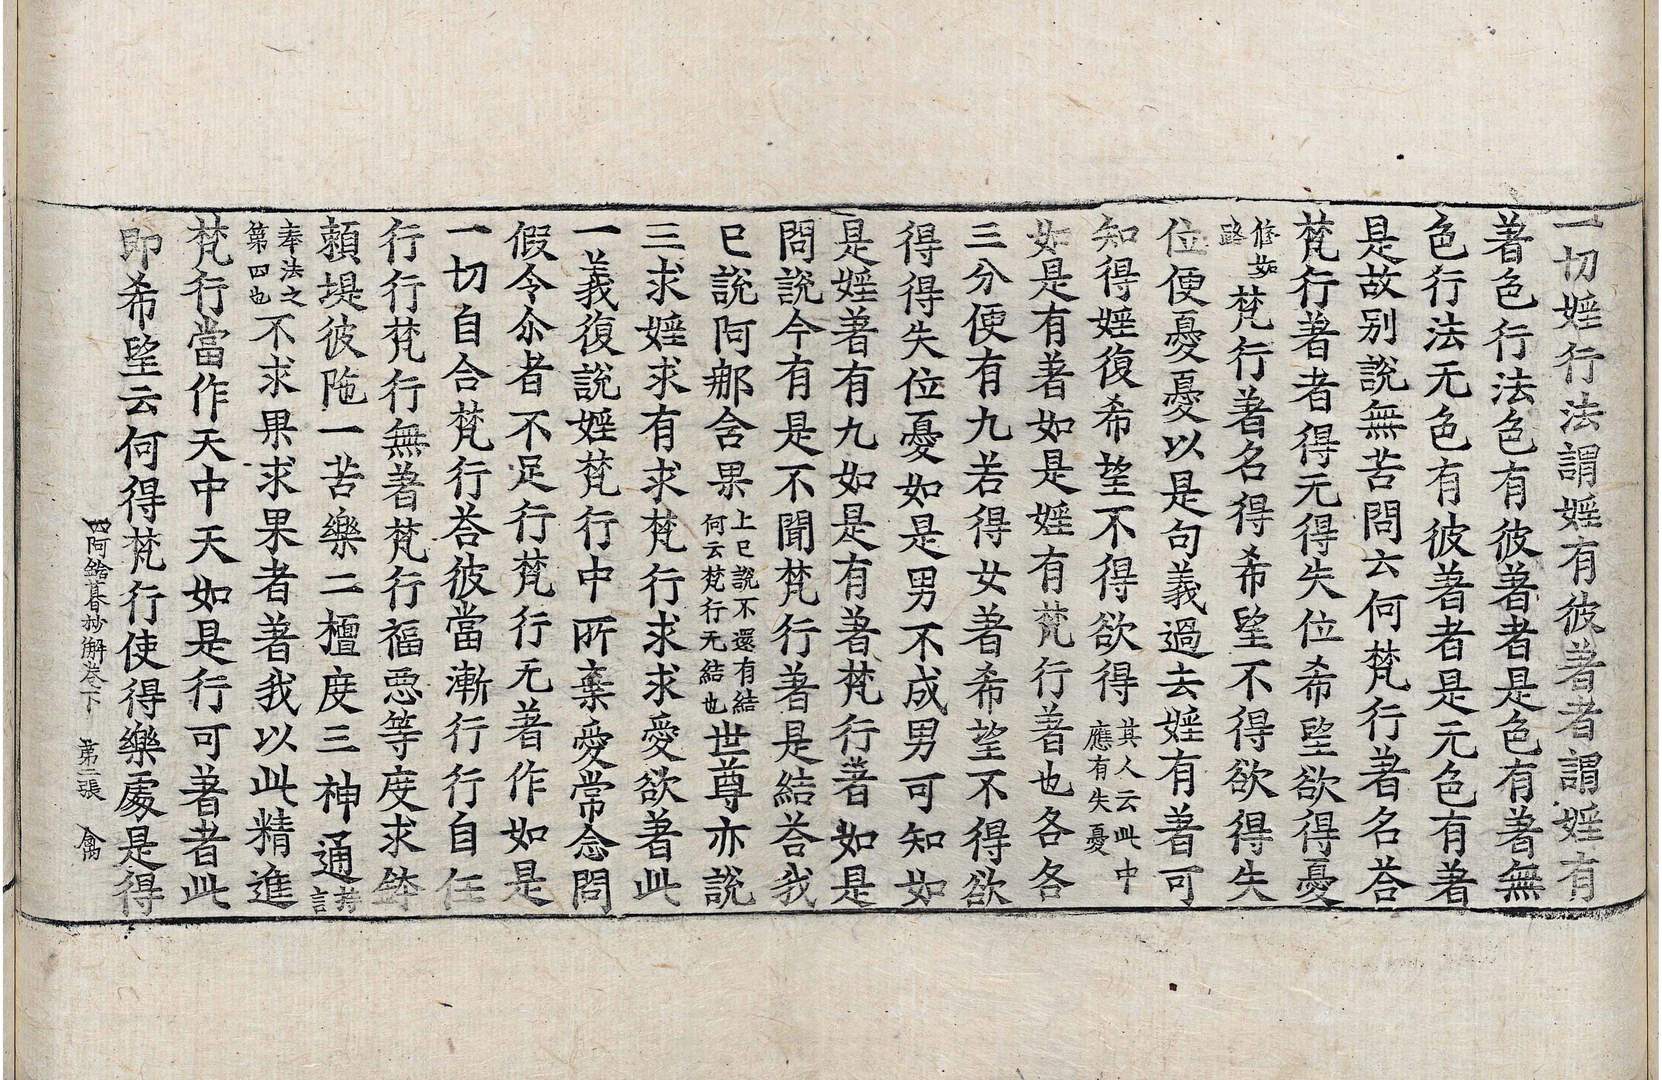 一切婬行法謂婬有彼著者謂婬有
著色行法色有彼著者是色有著無
色行法无色有彼著者是无色有著
是故别說無苦問云何梵行著名荅
梵行著者得元得失位希望欲得憂
修妬路梵行著名得希望不得欲得失
位便憂憂以是句義過去婬有著可
知得婬復希望不得欲得其人云此中應有失憂
如是有著如是婬有梵行著也各各
三分便有九若得女著希望不得欲
得得失位憂如是男不成男可知如
是婬著有九如是有著梵行著如是
問說今有是不聞梵行著是結荅我
已說阿那含果上已說不還有結何云梵行无結也世尊亦說
三求婬求有求梵行求求愛欲著此
一義復說婬梵行中所棄愛常念問
假令尒者不足行梵行无著作如是
一切自合梵行荅彼當漸行行自任
行行梵行無著梵行福惡等度求鉢
賴堤彼陁一苦樂二檀度三神通持言
奉法之第四也不求果求果者著我以此精進
梵行當作天中天如是行可著者此
即希望云何得梵行使得樂處是得
四阿鋡暮抄解卷下 第二張 禽